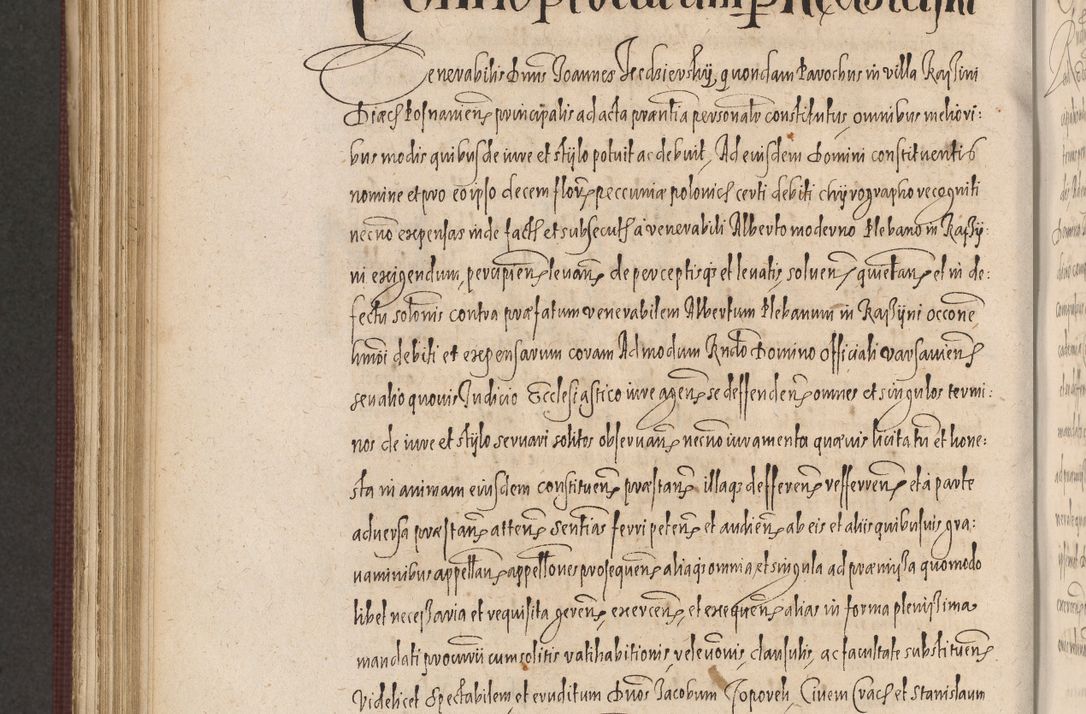 Venerabilis Dnus Joannes Jredzievskÿ, quondam Parochus in villa Raſsini
Diæc Posnanien principalis ad acta præntia personalr constitutus, omnibus meliori:
bus modis quibus de iure et stÿlo potuit ac debuit, Ad eiusdem Domini constituentis
nomine et pro eo ipso decem flor peccuniæ polonic certi debiti chÿrographo recogniti
necno expensas inde fact et subsecut à venerabili Alberto moderno Plebano in Raſsÿ:
ni exigendum, percipien levan de perceptisq et levatis solven quietan et in de:
fectu solonis contra præfatum venerabilem Albertum Plebanum in Raſsÿni occone
hmoi debiti et expensarum coram Admodum Rndo Domino Officiali varsavien
seu alio quovis Judicio Ecclesiastico iure agen se deffenden omnes et singulos termi:
nos de iure et stÿlo servari solitos observan necno iuramenta quævis licita tn et hone:
sta in animam eiusdem constituen præstan illaq defferen refferren et à parte
adversa præstan atten Sentias ferri peten et audien ab eis et aliis quibusvis gra:
vaminibus appellan appellones prosequen aliaq omnia et singula ad præmiſsa quomodo
libet neceſsaria et requisita geren exercen et exequen alias in forma pleniſsima
mandati procurii cum solitis ratihabitionis, relevonis, clausulis, ac facultate substituen
Videlicet Spectabilem et eruditum Dnos Jacobum Topoveh Civem Crac et Stanislaum